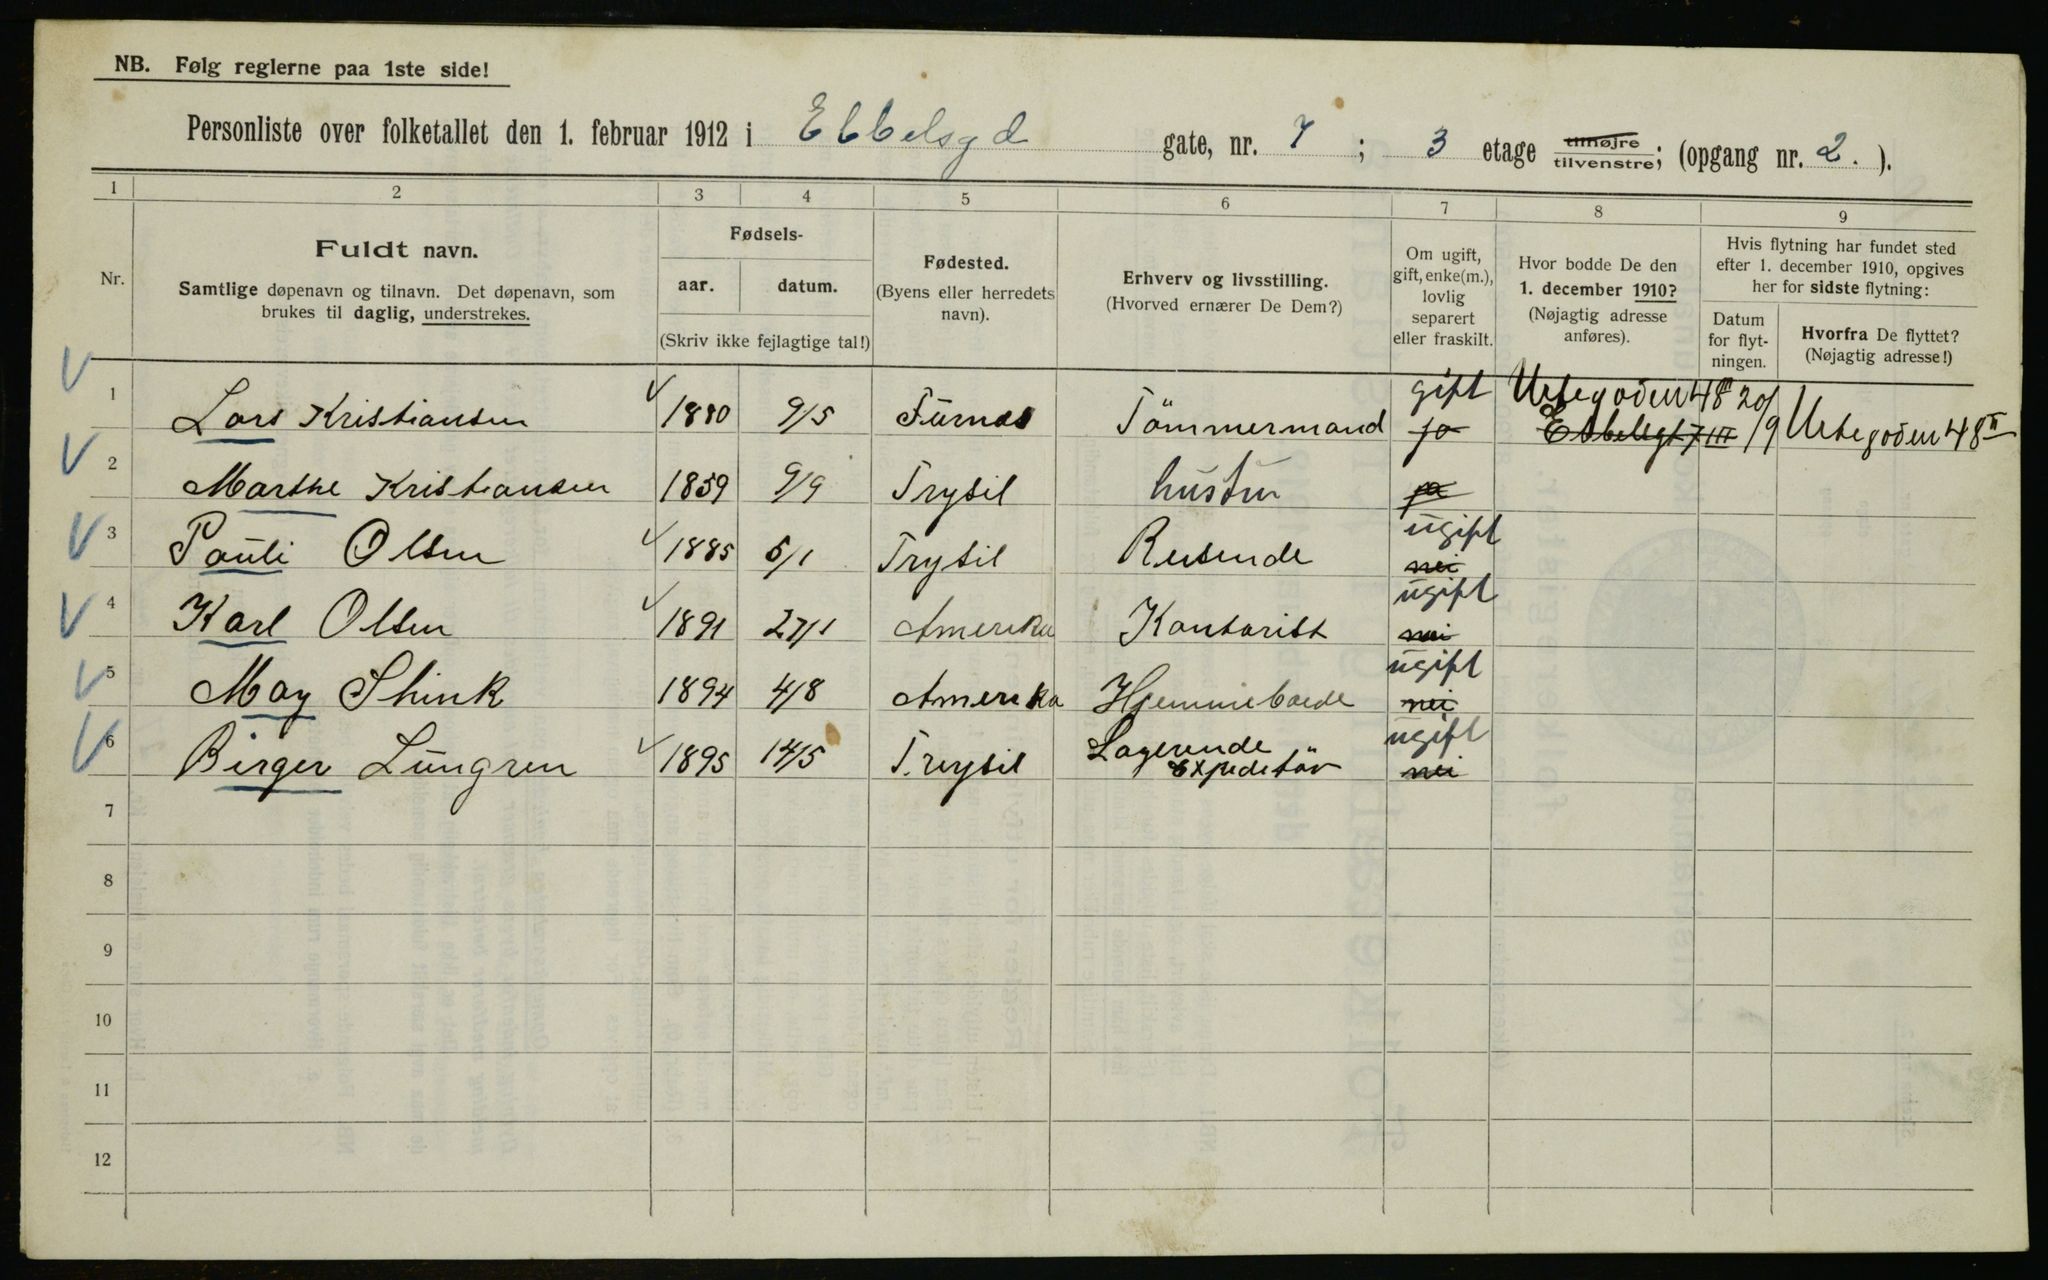 NB. Følg reglerne paa 1ste side!
Personliste over folketallet den 1. februar 1912 i Ebbelsgd gate, nr. 7; 3 etage tilhøjre tilvenstre; (opgang nr. 2.).
1 2 3 4 5 6 7 8 9
Nr.
Fuldt navn.
Samtlige døpenavn og tilnavn. Det døpenavn, som
brukes til daglig, understrekes.
Fødsels-
aar. datum.
(Skriv ikke fejlagtige tal!)
Fødested.
(Byens eller herredets
navn).
Erhverv og livsstilling.
(Hvorved ernærer De Dem?)
Om ugift,
gift, enke(m.),
lovlig
separert
eller fraskilt.
Hvor bodde De den
1. december 1910?
(Nøjagtig adresse
anføres).
Hvis flytning har fundet sted
efter 1. december 1910, opgives
her for sidste flytning:
Datum
for flyt-
ningen.
Hvorfra De flyttet?
(Nøjagtig adresse!)
1 Lars Kristiansen 1880 9/5 Furnes Tömmermand gift ja Urtegaden 48 III Ebbelsgt 7 III 20/9 Urtegaden 48 II
2 Marthe Kristiansen 1859 9/9 Trysil hustru ja
3 Pauli Olsen 1885 5/1 Trysil Reisende ugift nei
4 Karl Olsen 1891 27/1 Amerika Kontorist ugift nei
5 May Shink 1894 4/8 Amerika Hjemmeboede ugift nei
6 Birger Lungren 1895 14/5 Trysil Lagerende Expeditör ugift nei
7
8
9
10
11
12